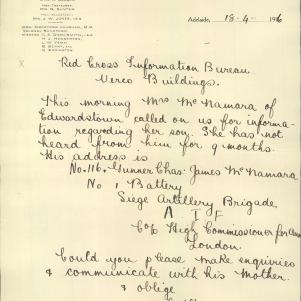 Adelaide, 18-4-1916
Red Cross Information Bureau.
Verco Buildings.
This morning Mrs McNamara of
Edwardstown called on us for information
regarding her son. She has not
heard from him for 9 months.
His address is
No. 116. Gunner Chas. James McNamara
No 1 Battery
Siege Artillery Brigade
A I F
C/o High Commissioner for
London.
Could you please make enquiries
& communicate with his Mother.
& oblige